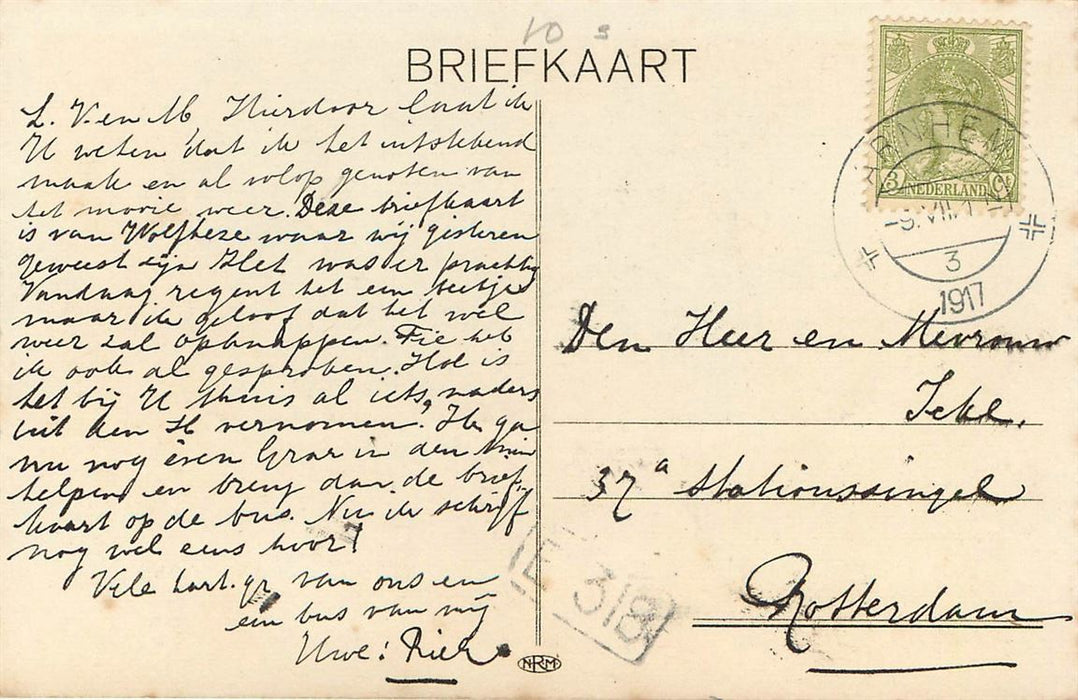 10 s
BRIEFKAART
L. V. en M Hierdoor laat ik
U weten dat ik het uitstekend
maak en al volop genoten van
het mooie weer. Deze briefkaart
is van Wolfheze waar wij gisteren
geweest zijn Het was er prachtig
Vandaag regent het een beetje
maar ik geloof dat het wel
weer zal opknappen. Fie heb
ik ook al gesproken. Hoe is
het bij U thuis al iets naders
uit den H vernomen? Ik ga
nu nog even in den
helpen en breng dan de brief-
kaart op de bus. Nu ik schrijf
nog wel eens hoor!
Vele hart. gr van ons en
een van mij
Uwe: Riek
NRM
3 Ct
NEDERLAND
ARNHEM
-9.VII.
3
1917
Den Heer en Mevrouw
37a Stationssingel
Rotterdam
E 318